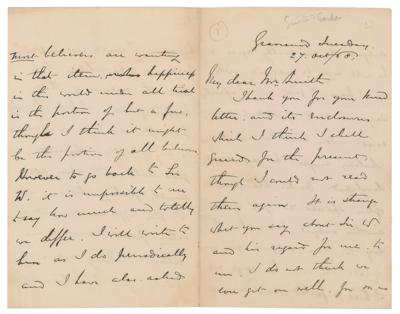 Gravesend Tuesday
27. Oct/68.
My dear Mrs Smith
Thank you for your kind
letter, and its enclosures
which I think I shall
for the present,
though I could not read
them again. It is strange
what you say about Sir W
and his regard for me, to
me. I do not think we
ever got on well, for on no
most believers are wanting
in that item, happiness
in this world under all trial
is the portion of but a few,
though I think it might
be the portion of all believers
However to go back to Sir
W. it is impossible to me
to say how much and totally
we differ. I will write to
him as I do periodically
and I have also asked